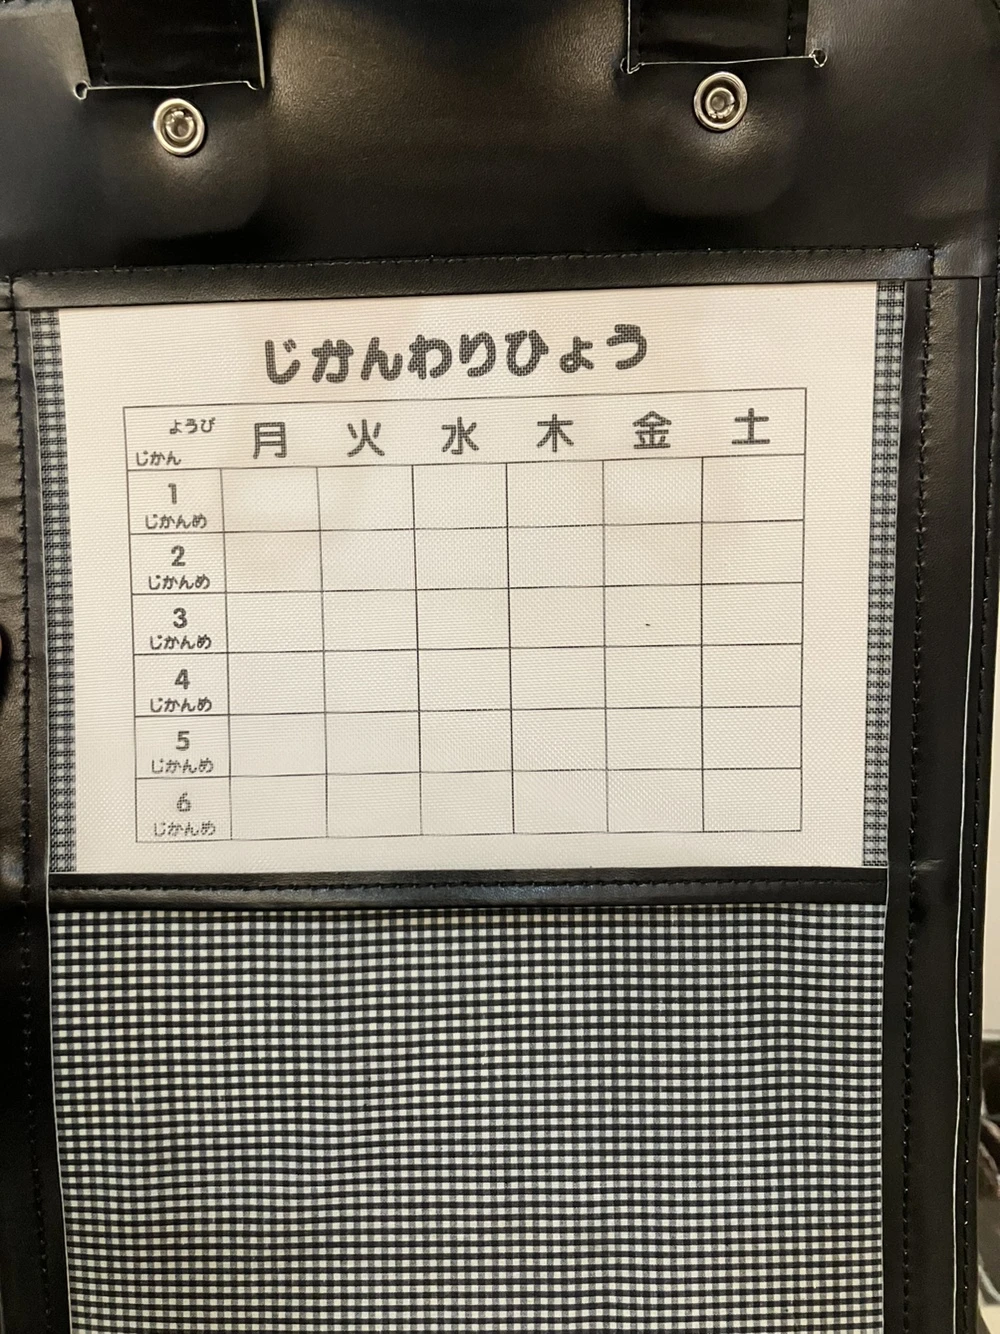 じかんわりひょう
ようび
じかん
月 火 水 木 金 土
1
じかんめ
2
じかんめ
3
じかんめ
4
じかんめ
5
じかんめ
6
じかんめ